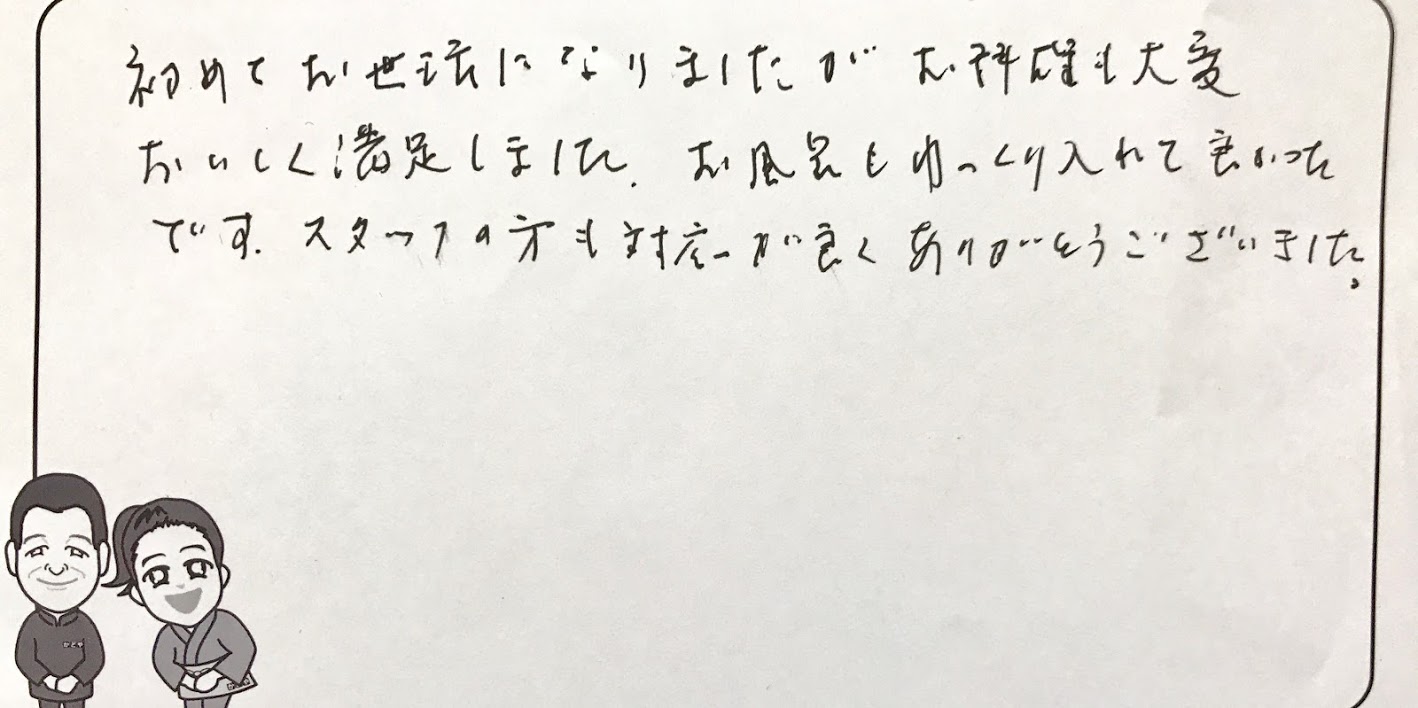 初めてお世話になりましたがお料理も大変
おいしく満足しました。お風呂もゆっくり入れて良かった
です。スタッフの方も対応が良くありがとうございました。